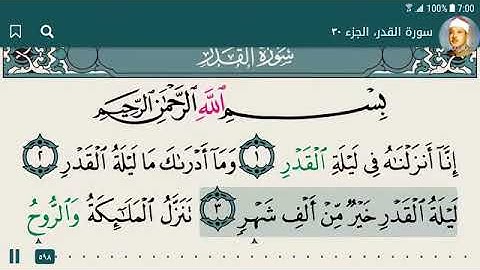 100% 7:00
سورة القدر، الجزء ٣٠
سُورَةُ القَدْرِ
بِسْمِ اللَّهِ الرَّحْمَٰنِ الرَّحِيمِ
إِنَّآ أَنزَلْنَٰهُ فِى لَيْلَةِ ٱلْقَدْرِ ١ وَمَآ أَدْرَىٰكَ مَا لَيْلَةُ ٱلْقَدْرِ ٢
لَيْلَةُ ٱلْقَدْرِ خَيْرٌ مِّنْ أَلْفِ شَهْرٍ ٣ تَنَزَّلُ ٱلْمَلَٰٓئِكَةُ وَٱلرُّوحُ
٥٩٨